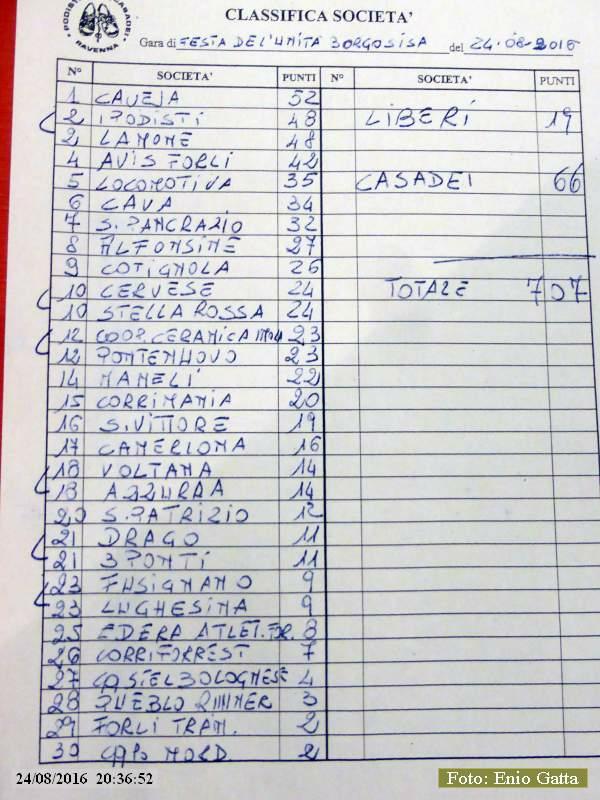 RAVENNA
CLASSIFICA SOCIETA'
Gara di FESTA DELL'UNITA BORGOSISA del 24-08-2016
N° SOCIETA' PUNTI N° SOCIETA' PUNTI
1 CAVEJA 52
2 IPODISTI 48 LIBERI 19
2 LAMONE 48
4 AVIS FORLI 42
5 LOCOMOTIVA 35 CASADEI 66
6 CAVA 34
7 S.PANCRAZIO 32
8 ALFONSINE 27
9 COTIGNOLA 26
10 CERVESE 24 TOTALE 707
10 STELLA ROSSA 24
12 COOP.CERAMICA IMOLA 23
12 PONTENUOVO 23
14 MAMELI 22
15 CORRIMANIA 20
16 S.VITTORE 19
17 CAMERLONA 16
18 VOLTANA 14
18 AZZURRA 14
20 S.PATRIZIO 12
21 DRAGO 11
21 3 PONTI 11
23 FUSIGNANO 9
23 LUGHESINA 9
25 EDERA ATLET.FOR. 8
26 CORRIFORREST 7
27 CASTELBOLOGNESE 4
28 PUEBLO RUNNER 3
29 FORLI TRAM. 2
30 MORD. 2
24/08/2016 20:36:52
Foto: Enio Gatta